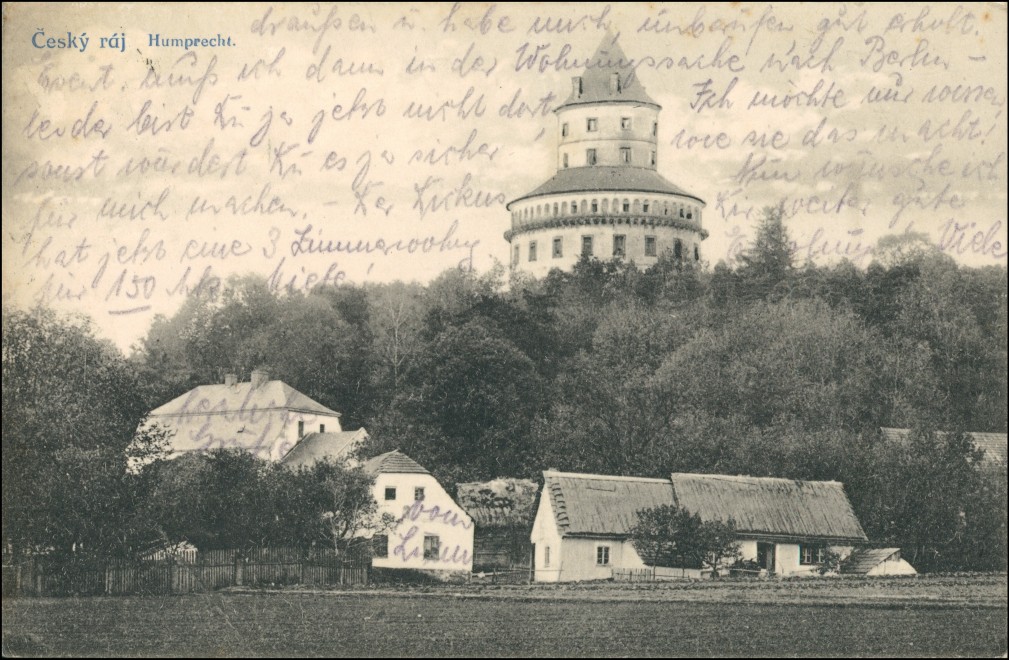 Český ráj Humprecht.
draußen u. habe mich gut erholt.
muß ich dann in der Wohnungssache nach Berlin –
leider bist Du ja jetzt nicht dort
sonst würdest Du es ja sicher
für mich machen. – Der Zirkus
hat jetzt eine 3 Zimmerwohng
für 150 Mk Miete!
Ich möchte nur wissen
wie sie das macht!
Nun wünsche ich
Dir weiter gute
Erholung Viele
herzl.
Grüße
vom